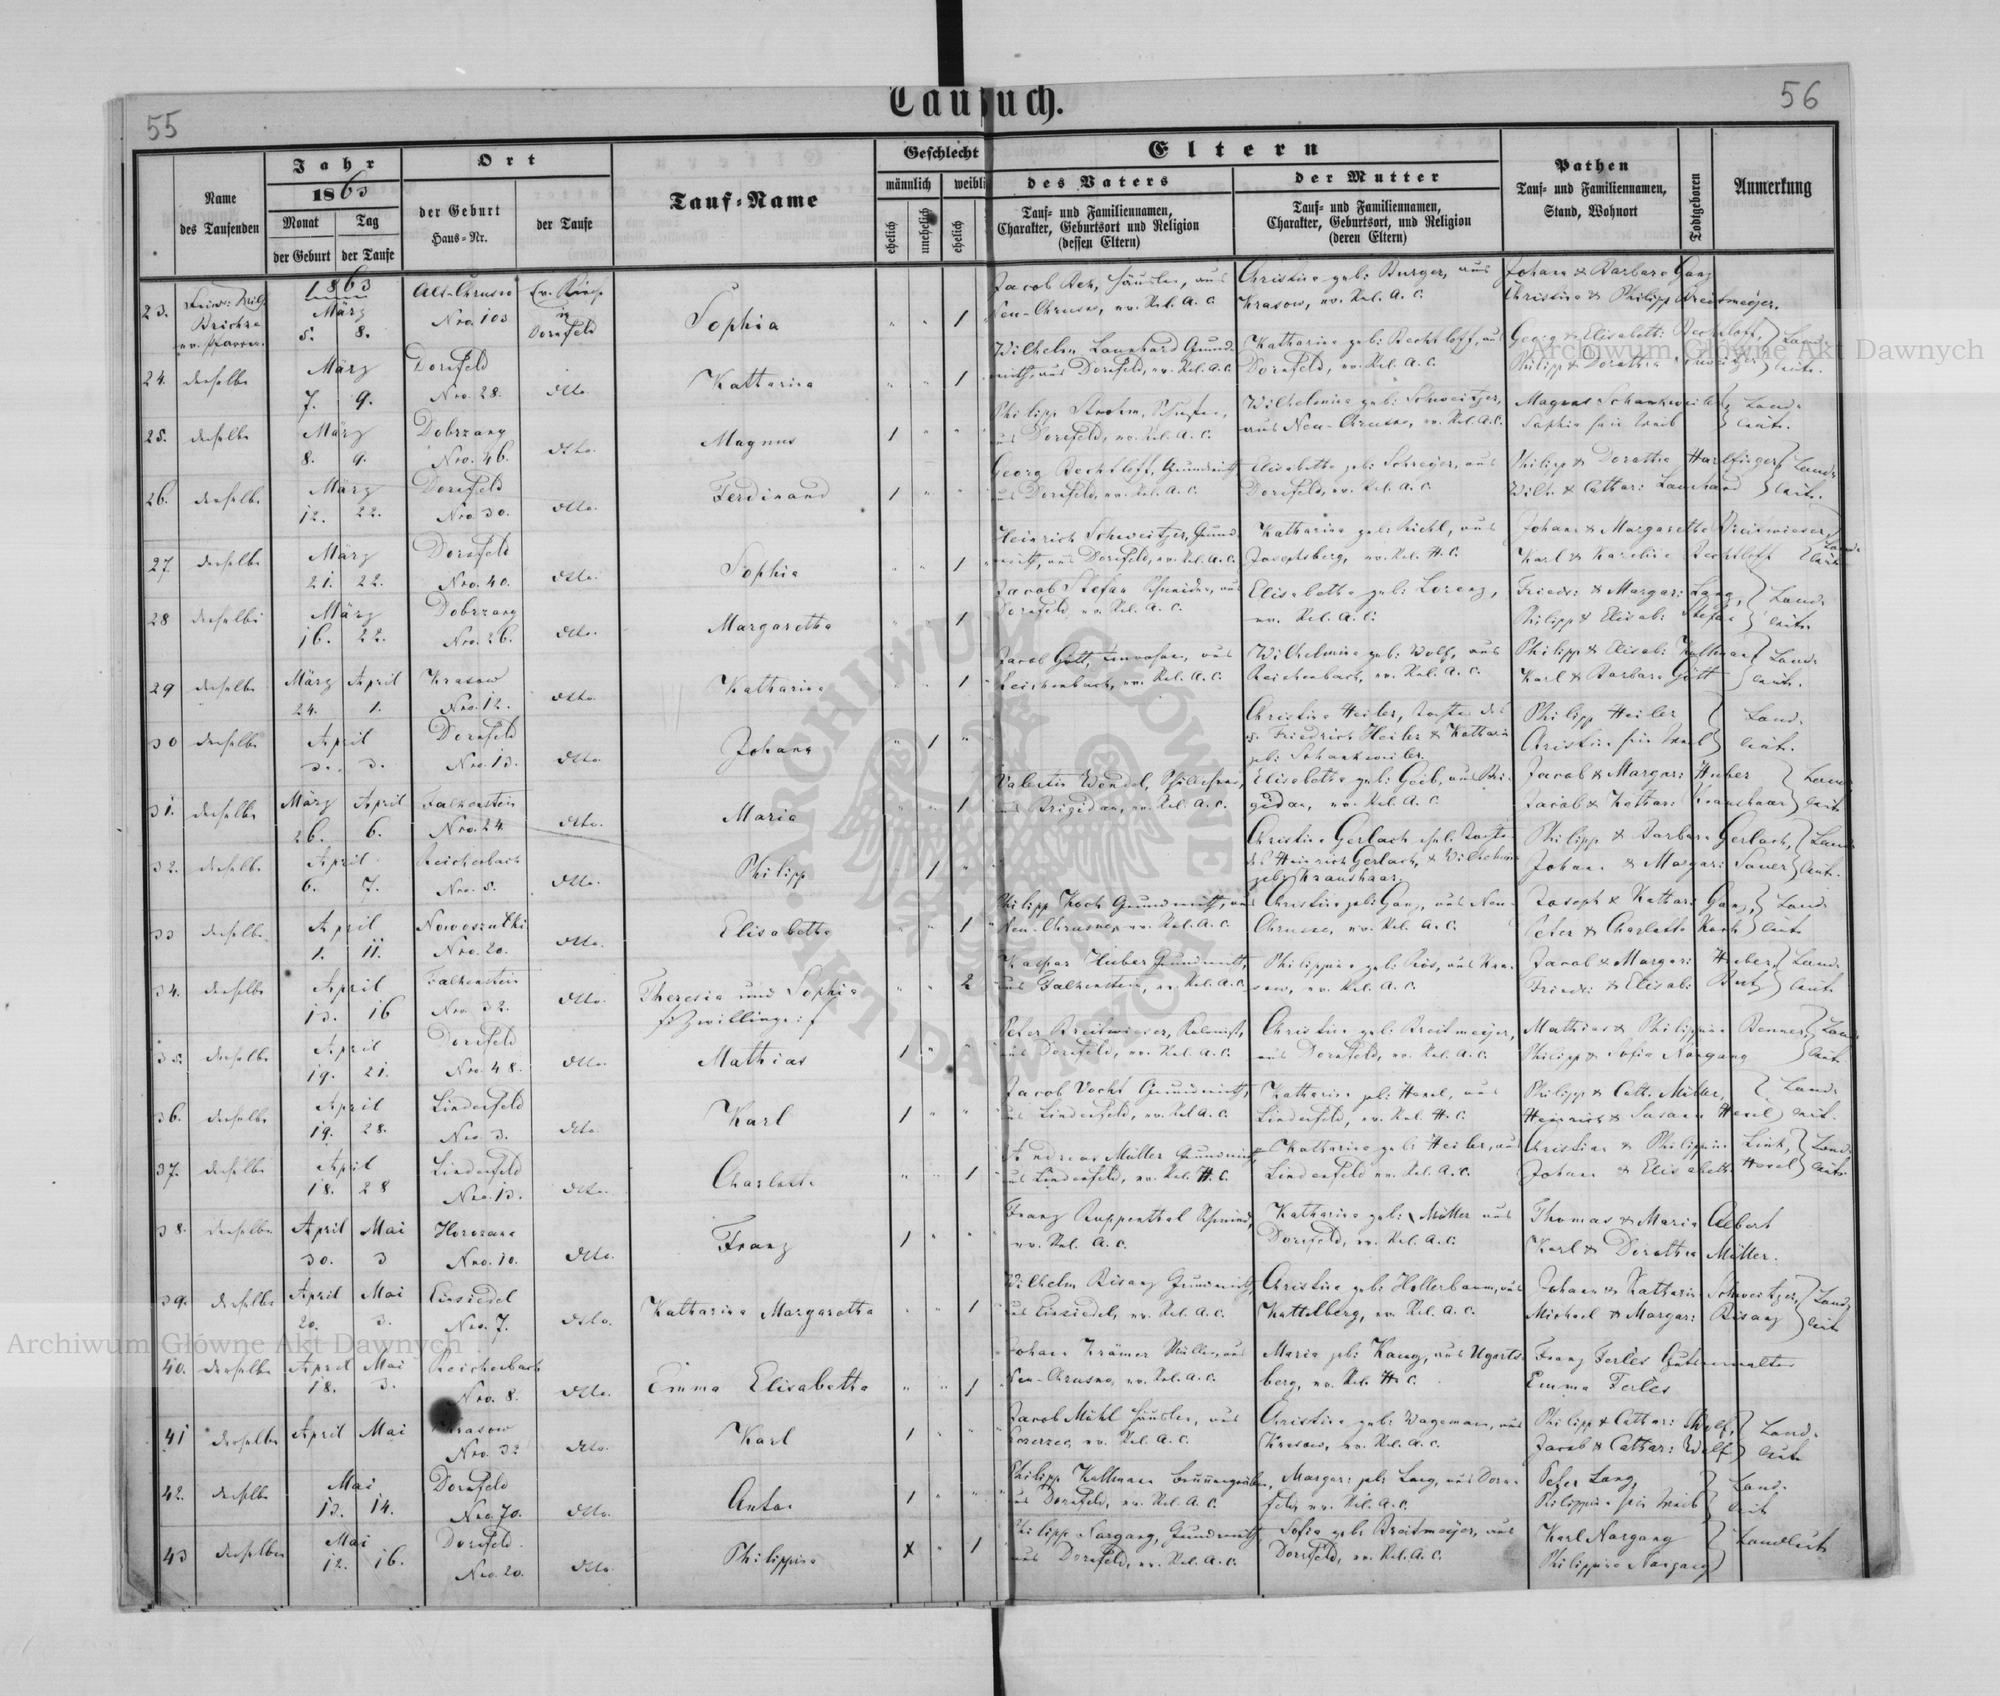 55
Taufbuch.
56
Name
des Taufenden
Jahr
1863
Monat Tag
der Geburt der Taufe
Ort
der Geburt
Haus-Nr.
der Taufe
Tauf-Name
Geschlecht
männlich weibli
ehelich unehelich ehelich
Eltern
des Vaters
Tauf- und Familiennamen,
Charakter, Geburtsort und Religion
(dessen Eltern)
der Mutter
Tauf- und Familiennamen,
Charakter, Geburtsort, und Religion
(deren Eltern)
Pathen
Tauf- und Familiennamen,
Stand, Wohnort
Todtgeboren
Anmerkung
23. 1863 März 5. 8. Alt-Chrusno Nro. 103 Ev. Kirche in Dornfeld Sophia 1
Neu-Chrusno, ev. Rel. A. C. Christina geb: Burger, aus Krasow, ev. Rel. A. C. Johann & Barbara Ganz Christina & Philipp Breitmeyer.
24. derselbe März 7. 9. Dornfeld Nro. 28. dtto. Katharina 1
Wilhelm Launhard Grundwirth, aus Dornfeld, ev. Rel. A. C. Katharina geb: Bechtloff, aus Dornfeld, ev. Rel. A. C. Georg & Elisabeth: Bechtloff, Philipp & Dorothea Landleute.
25. derselbe März 8. 9. Dobrzany Nro. 46. dtto. Magnus 1
Philipp Strohm, aus Dornfeld, ev. Rel. A. C. Wilhelmina geb: Schweitzer, aus Neu-Chrusno, ev. Rel. A. C. Magnus Schankweiler, Sophia sein Weib Landleute.
26. derselbe März 12. 22. Dornfeld Nro. 30. dtto. Ferdinand 1
Georg Bechtloff, Grundwirth aus Dornfeld, ev. Rel. A. C. Elisabetha geb: Schreyer, aus Dornfeld, ev. Rel. A. C. Philipp & Dorothea Harlfinger Wilh. & Cathar: Launhard Landleute.
27. derselbe März 21. 22. Dornfeld Nro. 40. dtto. Sophia 1
Heinrich Schweitzer, Grundwirth, aus Dornfeld, ev. Rel. A. C. Katharina geb: Richl, aus Josephsberg, ev. Rel. H. C. Johann & Margaretha Breitwieser, Karl & Karolina Bechtloff Landleute
28 derselbe März 16. 22. Dobrzany Nro. 26. dtto. Margaretha 1
Jacob Stefan Schneider, aus Dornfeld, ev. Rel. A. C. Elisabetha geb: Lorenz, ev. Rel. A. C. Friedr: & Margar: Lang, Philipp & Elisab: Stefan Landleute.
29 derselbe März 24. April 1. Krasow Nro. 12. dtto. Katharina 1
Jacob Gött, aus Reichenbach, ev. Rel. A. C. Wilhelmina geb: Wolf, aus Reichenbach, ev. Rel. A. C. Philipp & Elisab: Kullmann Karl & Barbara Gött Landleute.
30 derselbe April 3. 3. Dornfeld Nro. 13. dtto. Johann 1
Christina Heiler, Tochter des Friedrich Heiler & Katharina geb: Schankweiler. Philipp Heiler Christina sein Weib Landleute.
31. derselbe März 26. April 6. Falkenstein Nro. 24. dtto. Maria 1
Valentin Wendel, aus Brigidau, ev. Rel. A. C. Elisabetha geb: Geib, aus Brigidau, ev. Rel. A. C. Jacob & Margar: Huber Jacob & Kathar: Kraushaar Landleute
32. derselbe April 6. 7. Reichenbach Nro. 5. dtto. Philipp 1
Christina Gerlach, Tochter des Heinrich Gerlach, & Wilhelmina geb: Kraushaar. Philipp & Barbara Gerlach, Johann & Margar: Sauer Landleute.
33 derselbe April 1. 11. Nowosiułki Nro. 20. dtto. Elisabetha 1
Philipp Koch Grundwirth, aus Neu-Chrusno, ev. Rel. A. C. Christina geb: Ganz, aus Neu-Chrusno, ev. Rel. A. C. Joseph & Kathar: Ganz, Peter & Charlotte Koch Landleute
34. derselbe April 13. 16 Falkenstein Nro. 32. dtto. Theresia und Sophia Zwillinge 2
Kaspar Huber Grundwirth, aus Falkenstein, ev. Rel. A. C. Philippina geb: Rös, aus Krasow, ev. Rel. A. C. Jacob & Margar: Huber, Friedr: & Elisab: Butz Landleute
35. derselbe April 19. 21. Dornfeld Nro. 48. dtto. Mathias 1
Peter Breitwieser, Kolonist, aus Dornfeld, ev. Rel. A. C. Christina geb: Breitmeyer, aus Dornfeld, ev. Rel. A. C. Mathias & Philippina Benner Philipp & Sofia Nargang Landleute
36. derselbe April 19. 28. Lindenfeld Nro. 3. dtto. Karl 1
Jacob Vocht Grundwirth, aus Lindenfeld, ev. Rel. A. C. Katharina geb: Hexel, aus Lindenfeld, ev. Rel. H. C. Philipp & Cath. Müller, Heinrich & Susann Hexel Landleute.
37. derselbe April 18. 28 Lindenfeld Nro. 13. dtto. Charlotte 1
Andreas Müller Grundwirth, aus Lindenfeld, ev. Rel. H. C. Katharina geb: Heiler, aus Lindenfeld ev. Rel. A. C. Christian & Philippina Link, Johann & Elisabeth Hexel Landleute
38. derselbe April 30. Mai 3 Horozana Nro. 10. dtto. Franz 1
Franz Ruppenthal Schmied, ev. Rel. A. C. Katharina geb: Müller aus Dornfeld, ev. Rel. A. C. Thomas & Maria Albert Karl & Dorothea Müller.
39. derselbe April 20. Mai 3. Einsiedel Nro. 7. dtto. Katharina Margaretha 1
Wilhelm Bisanz Grundwirth, aus Einsiedel, ev. Rel. A. C. Christina geb: Hollerbaum, aus Kuttelberg, ev. Rel. A. C. Johann & Katharina Schweitzer, Michael & Margar: Bisanz Landleute
40. derselbe April 18. Mai 3. Reichenbach Nro. 8. dtto. Emma Elisabetha 1
Johann Krämer Müller, aus Neu-Chrusno, ev. Rel. A. C. Maria geb: Kanz, aus Ugartsberg, ev. Rel. H. C. Franz Ferles Gutsverwalter Emma Ferles
41 derselbe April Mai Krasow Nro. 32 dtto. Karl 1
Jacob Mühl Häusler, aus ev. Rel. A. C. Christina geb: Wagemann, aus Krasow, ev. Rel. A. C. Philipp & Cathar: Wolf, Jacob & Cathar: Wolf Landleute
42. derselbe Mai 13. 14. Dornfeld Nro. 70. dtto. Anton 1
Philipp Kullmann Brunnengräber, aus Dornfeld, ev. Rel. A. C. Margar: geb: Lang, aus Dornfeld, ev. Rel. A. C. Peter Lang, Philippina sein Weib Landleute
43 derselbe Mai 12. 16. Dornfeld. Nro. 20. dtto. Philippina 1
Philipp Nargang, Grundwirth, aus Dornfeld, ev. Rel. A. C. Sofia geb: Breitmeyer, aus Dornfeld, ev. Rel. A. C. Karl Nargang Philippina Nargang Landleute
Archiwum Główne Akt Dawnych
Archiwum Główne Akt Dawnych
ARCHIWUM GŁÓWNE AKT DAWNYCH